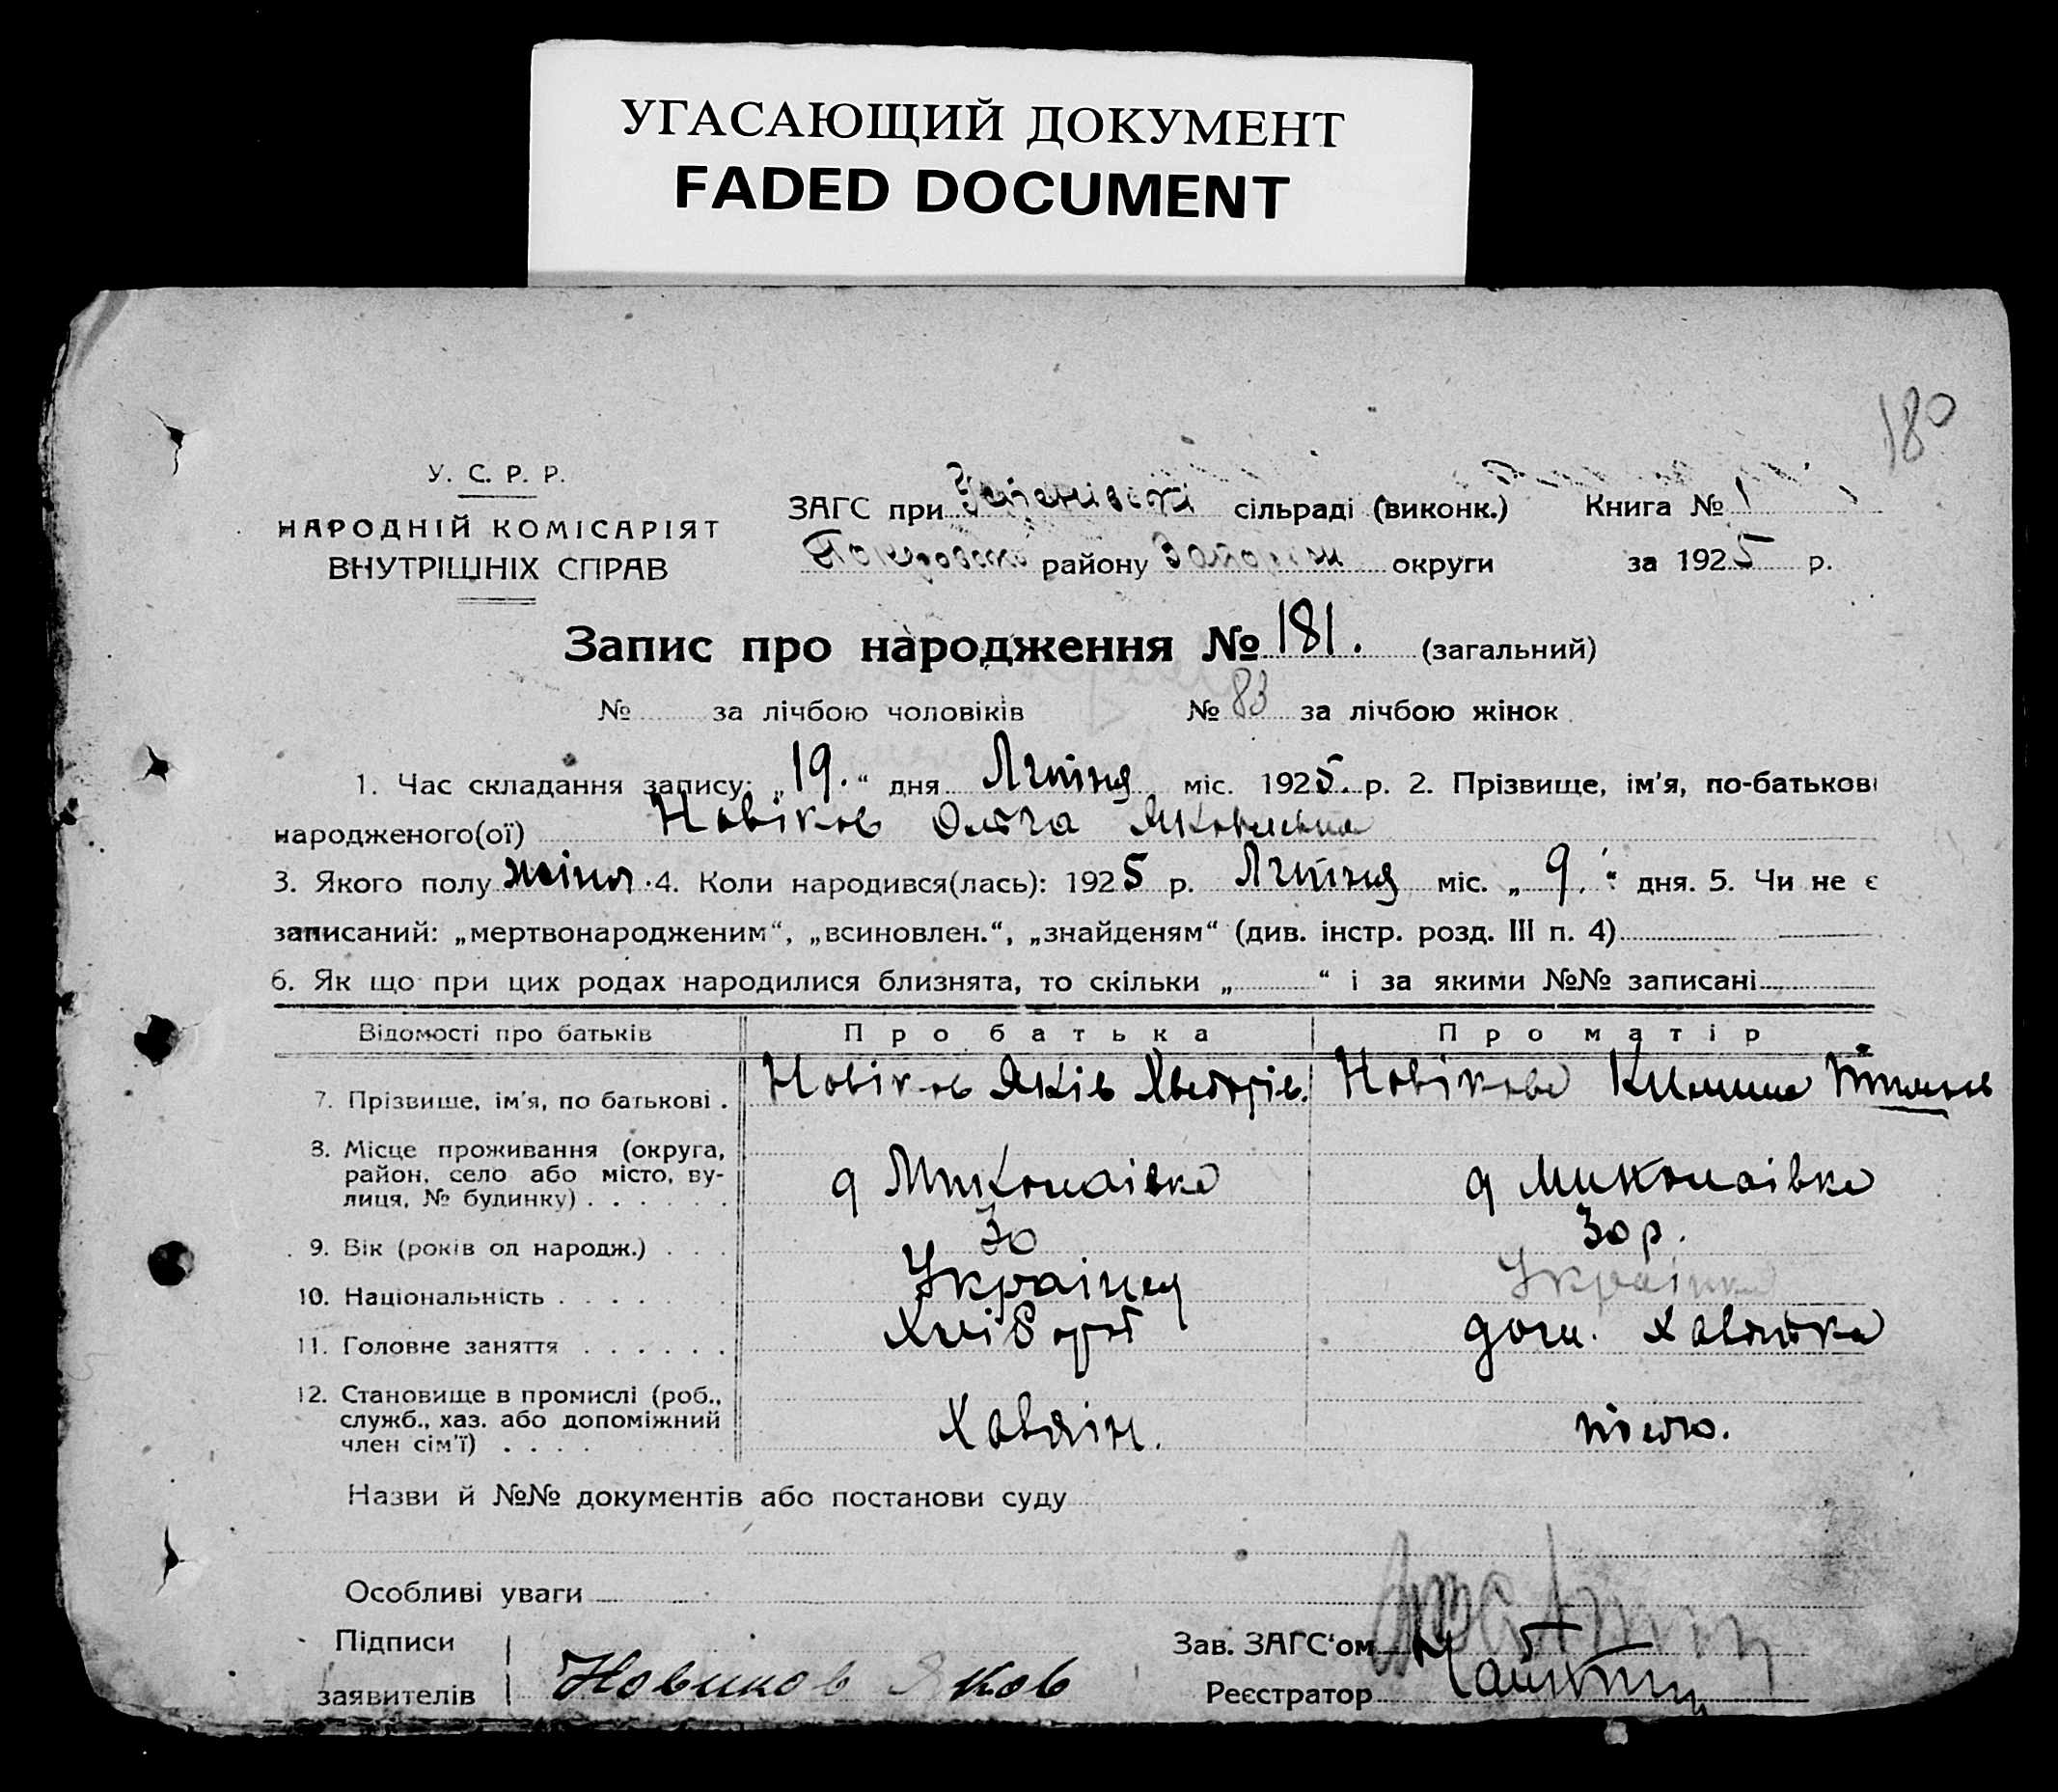 УГАСАЮЩИЙ ДОКУМЕНТ
FADED DOCUMENT
180
У. С. Р. Р.
НАРОДНІЙ КОМІСАРІЯТ
ВНУТРІШНІХ СПРАВ
ЗАГС при сільраді (виконк.) Книга № 1
району округи за 1925 р.
Запис про народження № 181. (загальний)
№ за лічбою чоловіків № 83 за лічбою жінок
1. Час складання запису: „19.“ дня Липня міс. 1925. р. 2. Прізвище, ім'я, по-батькові
народженого(ої) Новіков Ольга Яковлевна
3. Якого полу жіноч. 4. Коли народився(лась): 1925 р. Липня міс. „9.“ дня. 5. Чи не є
записаний: „мертвонародженим“, „всиновлен.“, „знайденям“ (див. інстр. розд. III п. 4)
6. Як що при цих родах народилися близнята, то скільки „ “ і за якими №№ записані
Відомості про батьків Про батька Про матір
7. Прізвище, ім'я, по батькові . Новіков Яків Новікова
8. Місце проживання (округа,
район, село або місто, ву-
лиця, № будинку) . . . . . . д Миколаівка д Миколаівка
9. Вік (років од народж.) . . . 30 30 р.
10. Національність . . . . . . . Українец Українка
11. Головне заняття . . . . . . Хлібороб дом. Хазяйка
12. Становище в промислі (роб.,
служб., хаз. або допоміжний
член сім'ї) . . . . Хазяін.
Назви й №№ документів або постанови суду
Особливі уваги
Підписи
заявителів Новиков Яков
Зав. ЗАГС‘ом
Реєстратор